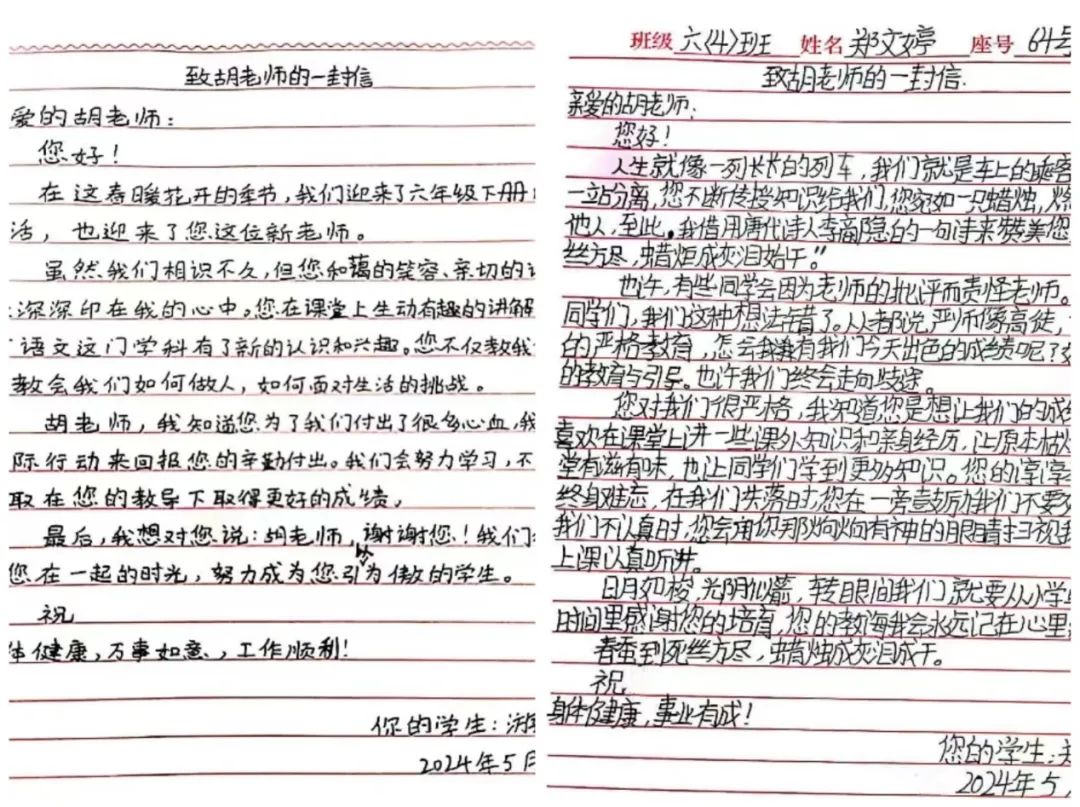 致胡老师的一封信
爱的胡老师：
您好！
在这春暖花开的季节，我们迎来了六年级下册
活，也迎来了您这位新老师。
虽然我们相识不久，但您和蔼的笑容、亲切的
深深印在我的心中。您在课堂上生动有趣的讲解
语文这门学科有了新的认识和兴趣。您不仅教我
教会我们如何做人，如何面对生活的挑战。
胡老师，我知道您为了我们付出了很多心血，我
际行动来回报您的辛勤付出。我们会努力学习，不
取在您的教导下取得更好的成绩，
最后，我想对您说：胡老师，谢谢您！我们
您在一起的时光，努力成为您引以为傲的学生。
祝
体健康，万事如意、，工作顺利！
你的学生：游
2024年5月
班级 六（4）班 姓名 郑文婷 座号 64号
致胡老师的一封信.
亲爱的胡老师：
您好！
人生就像一列长长的列车，我们就是车上的乘客
一站分离，您不断传授知识给我们，您宛如一只蜡烛，燃
他人，至此。我借用唐代诗人李商隐的一句诗来赞美您
丝方尽，蜡炬成灰泪始干。”
也许，有些同学会因为老师的批评而责怪老师。
同学们，我们这种想法错了。人都说，严师傅高徒，
的严格教育，怎会我有我们今天出色的成绩呢？
的教育与引导。也许我们终会走向歧途。
您对我们很严格，我知道您是想让我们的成绩
喜欢在课堂上讲一些课外知识和亲身经历，让原本枯燥
堂有滋有味，也让同学们学到更多知识。您的谆谆
终身难忘，在我们失落时，您在一旁鼓励我们不要
我们不认真时，您会用您那炯炯有神的眼睛扫视我
上课认真听讲。
日月如梭，光阴似箭，转眼间我们就要从小学
时间里感谢您的培育，您的教诲我会永远记在心里
春蚕到死丝方尽，蜡烛成灰泪成干。
祝
身体健康，事业有成！
您的学生：郑
2024年5